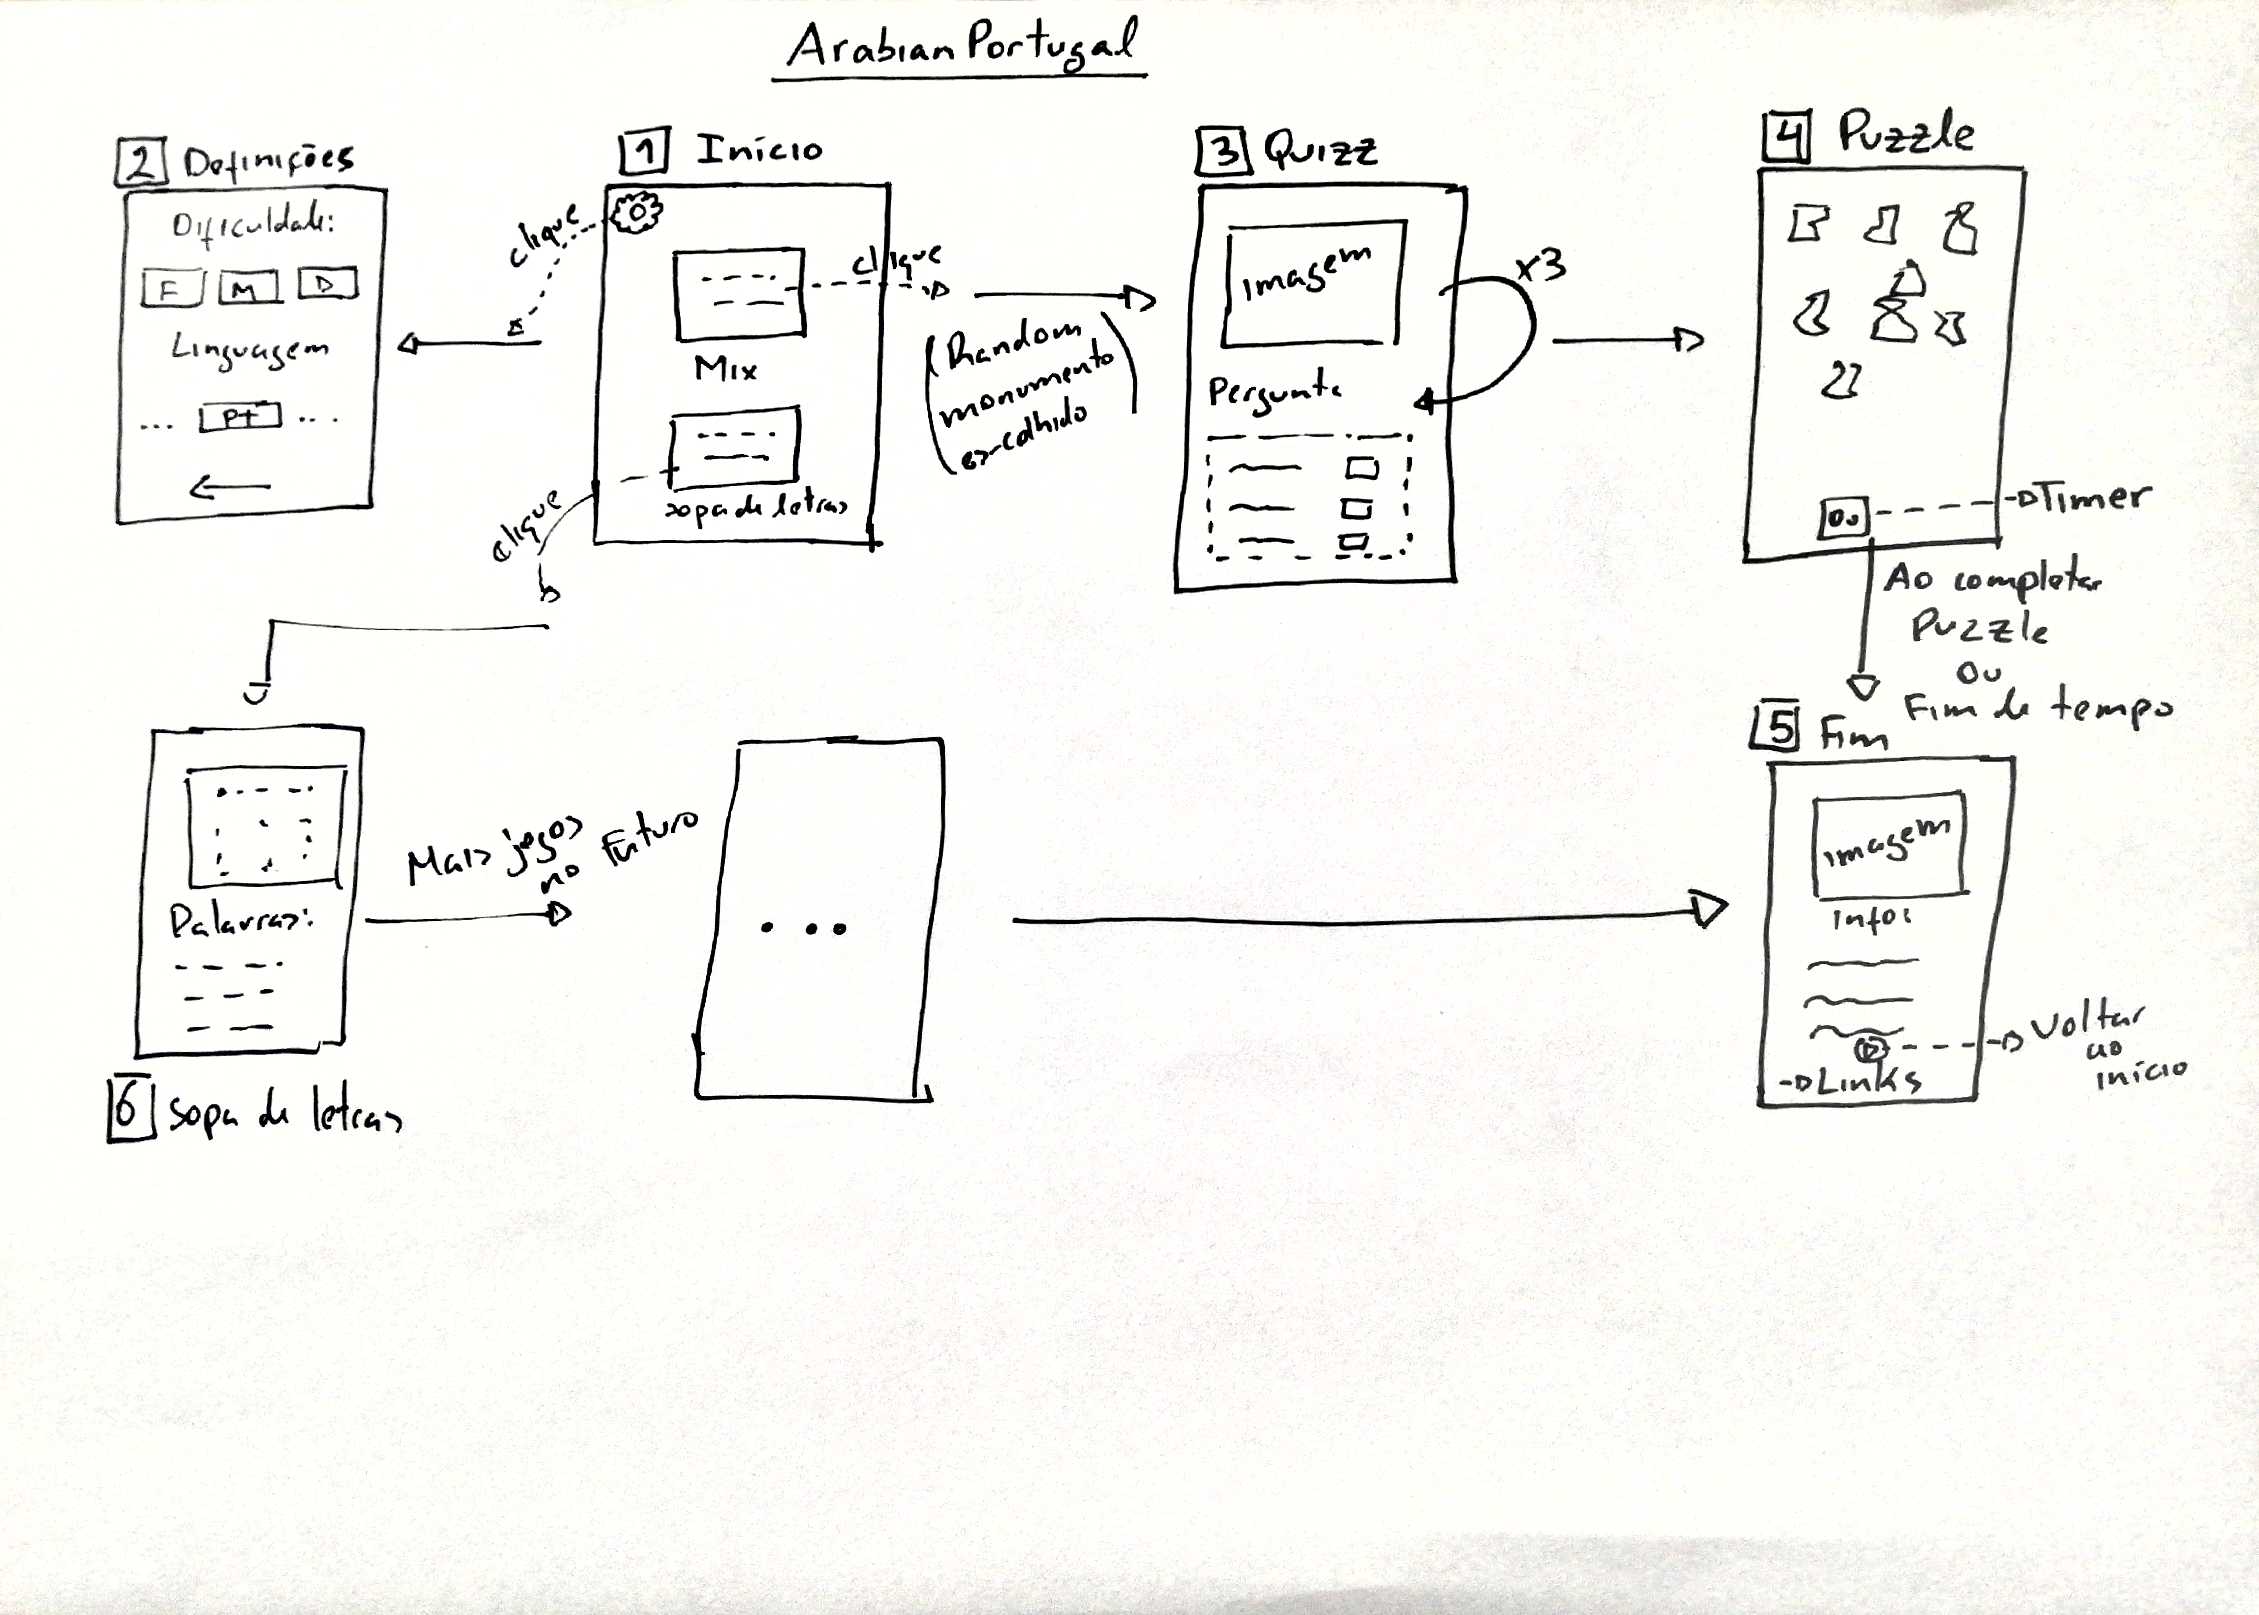 Arabian Portugal
2 Definições
Dificuldade:
F M D
Linguagem
... Pt ...
clique
1 Início
clique
Mix
sopa de letras
clique
(Random
monumento
escolhido)
3 Quizz
Imagem
x3
Pergunta
4 Puzzle
Timer
Ao completar
Puzzle
ou
Fim de tempo
5 Fim
Imagem
Info:
Links
Voltar
ao
início
Palavras:
6 sopa de letras
Mais jogos
no Futuro
...